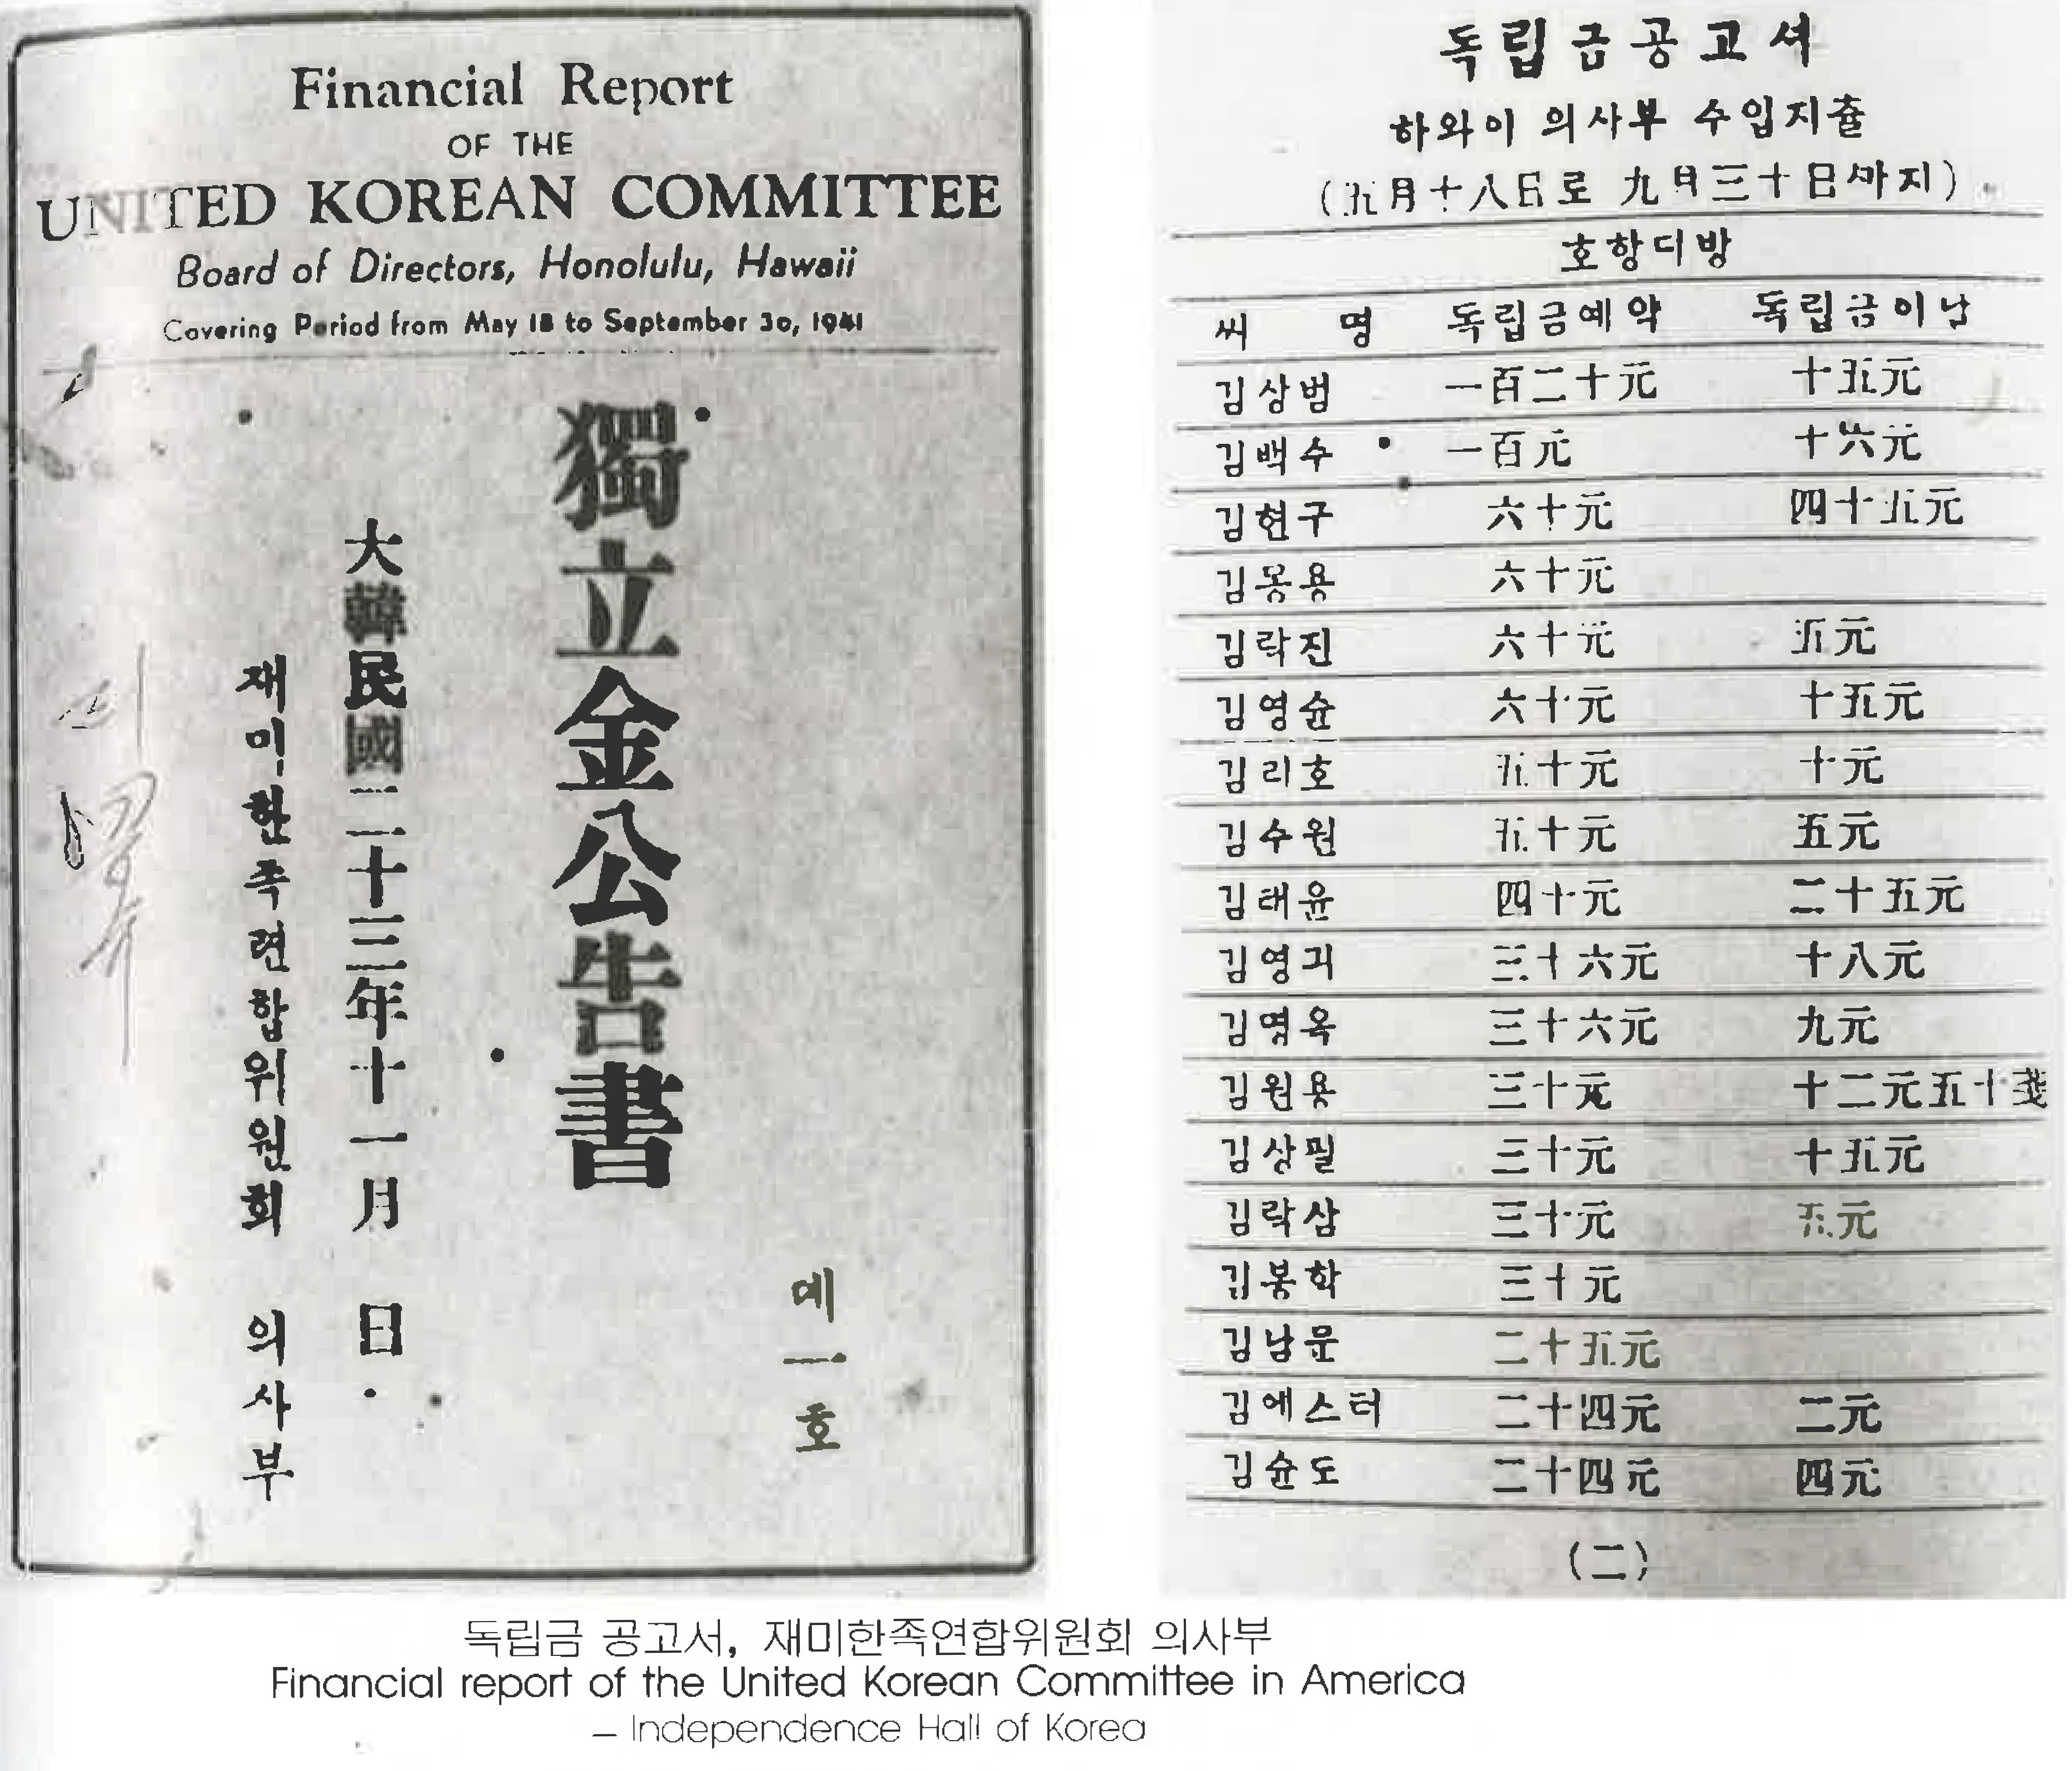 Financial Report
OF THE
UNITED KOREAN COMMITTEE
Board of Directors, Honolulu, Hawaii
Covering Period from May 18 to September 30, 1941
뎨一호
獨立金公告書
大韓民國二十三年十一月 日
재미한족련합위원회 의사부
독립금공고셔
하와이 의사부 수입지츌
(五月十八日로 九月三十日까지)
호항디방
씨 명 독립금예약 독립금이납
김상범 一百二十元 十五元
김백수 一百元 十六元
김현구 六十元 四十五元
김몽용 六十元
김락진 六十元 五元
김영슌 六十元 十五元
김리호 五十元 十元
김수원 五十元 五元
김태윤 四十元 二十五元
김영긔 三十六元 十八元
김명옥 三十六元 九元
김원용 三十元 十二元五十戔
김상필 三十元 十五元
김락삼 三十元 五元
김봉학 三十元
김남문 二十五元
김에스터 二十四元 二元
김슌도 二十四元 四元
(二)
독립금 공고서, 재미한족연합위원회 의사부
Financial report of the United Korean Committee in America
– Independence Hall of Korea